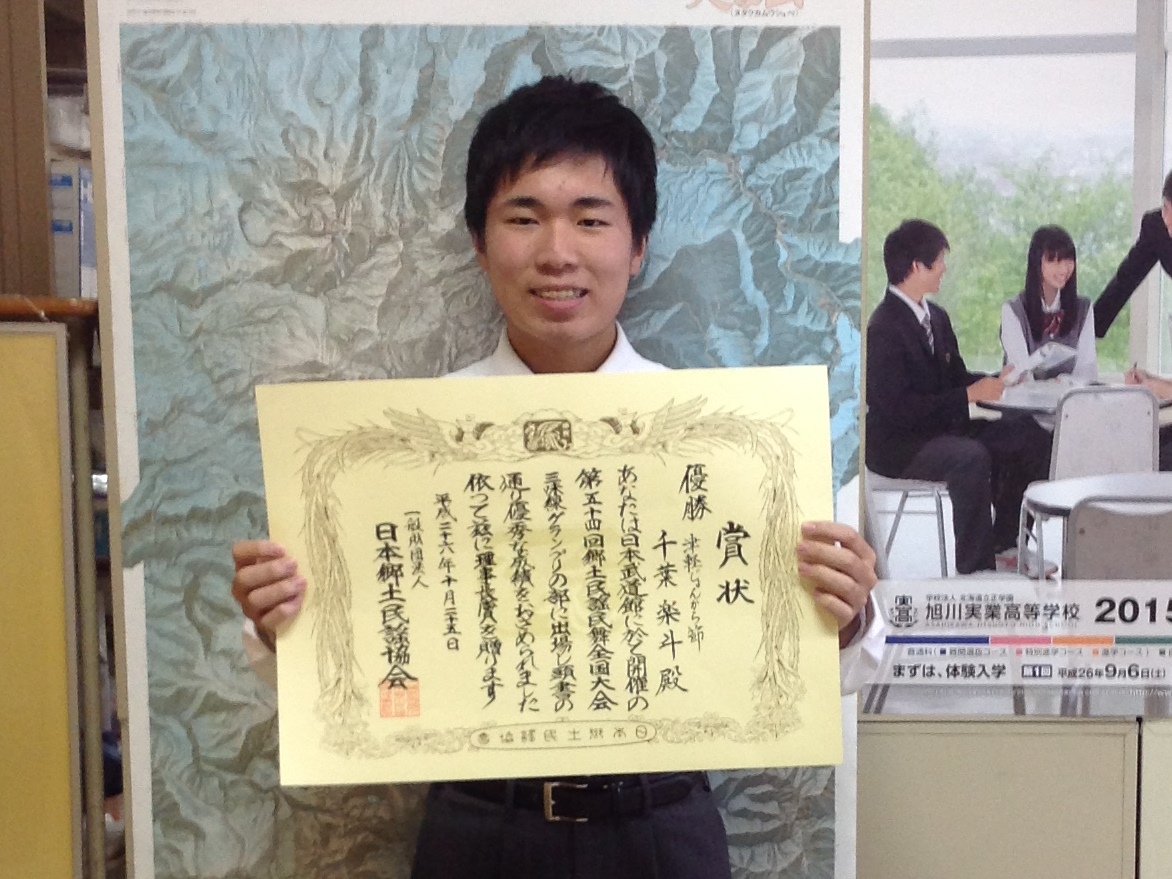 賞状
優勝 津軽じょんから節
千葉楽斗殿
あなたは日本武道館に於て開催の
第五十四回郷土民謡民舞全国大会
三味線グランプリの部に出場し頭書の
通り優秀な成績をおさめられました
依つて茲に理事長賞を贈ります
平成二十六年十月二十五日
一般財団法人
日本郷土民謡協会
日本郷土民謡協会
(ヌタプカムウシュペ)
学校法人 北海道立正学園
旭川実業高等学校 2015
ASAHIKAWA JITSUGYO HIGH SCHOOL
普通科(■難関選抜コース ■特別進学コース ■進学コース)
まずは、体験入学 第1回 平成26年9月6日(土)